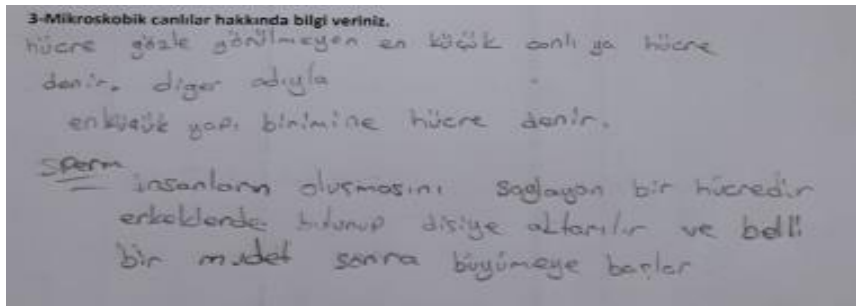 3-Mikroskobik canlılar hakkında bilgi veriniz.
hücre gözle görülmeyen en küçük canlı ya hücre
denir. diger adıyla
enküçük yapı birimine hücre denir.
Sperm
insanların oluşmasını sağlayan bir hücredir
erkeklerde bulunup dişiye aktarılır ve belli
bir mudet sonra büyümeye başlar